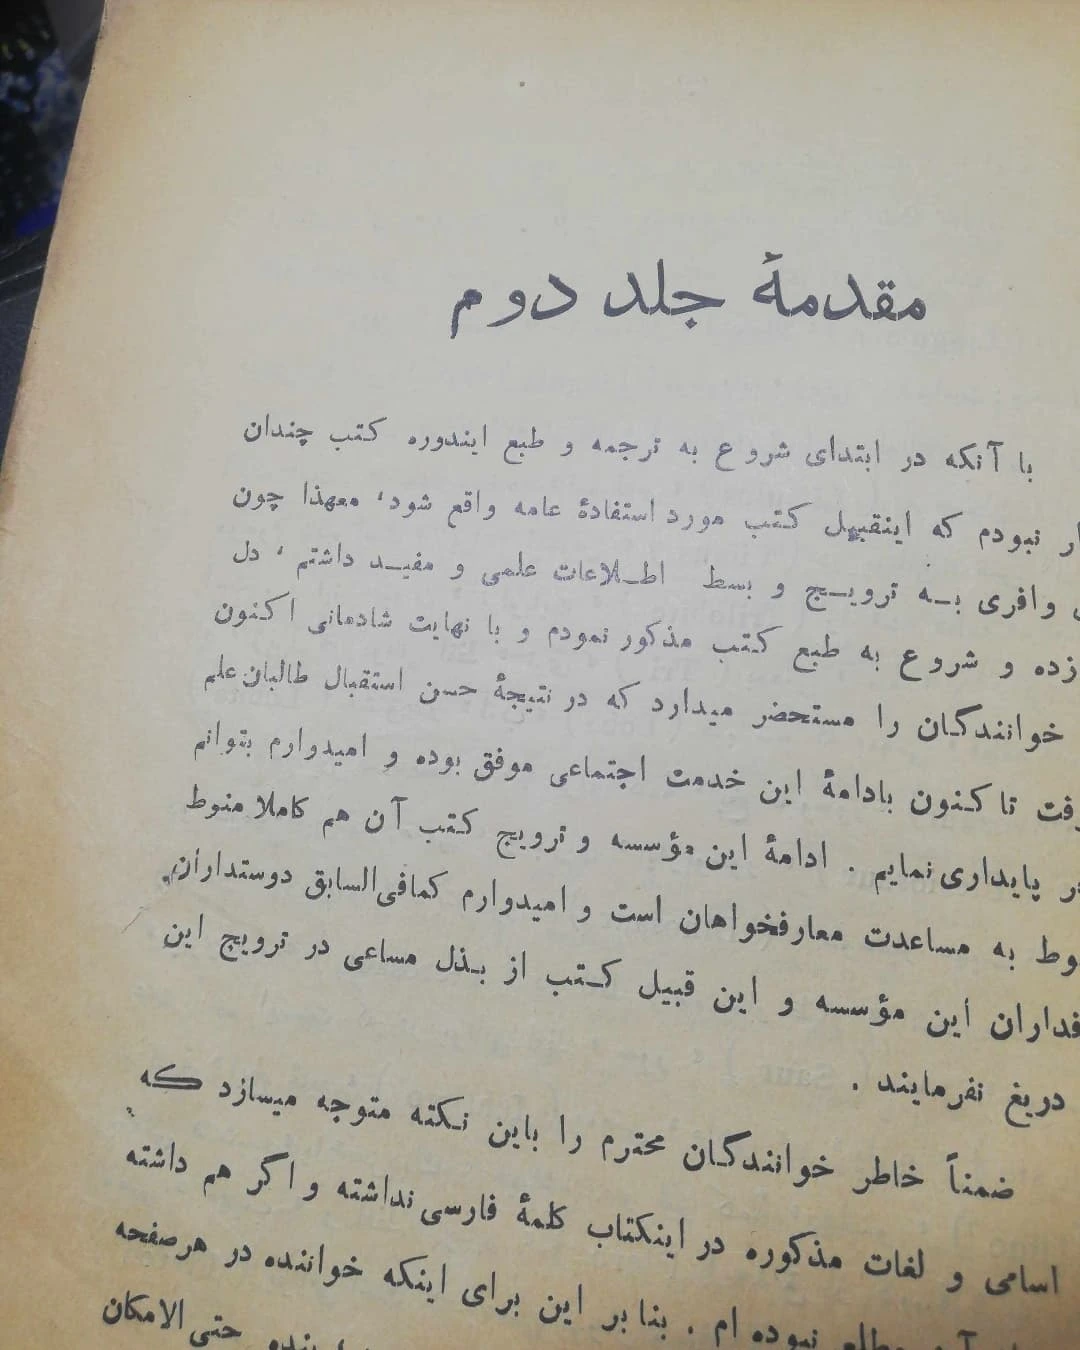 مقدمهٔ جلد دوم
با آنکه در ابتدای شروع به ترجمه و طبع ایندوره کتب چندان
نبودم که اینقبیل کتب مورد استفادهٔ عامه واقع شود، معهذا چون
وافری به ترویج و بسط اطلاعات علمی و مفید داشتم، دل
زده و شروع به طبع کتب مذکور نمودم و با نهایت شادمانی اکنون
خوانندگان را مستحضر میدارد که در نتیجهٔ حسن استقبال طالبان علم
تا کنون بادامهٔ این خدمت اجتماعی موفق بوده و امیدوارم بتوانم
پایداری نمایم . ادامهٔ این مؤسسه و ترویج کتب آن هم کاملا منوط
به مساعدت معارفخواهان است و امیدوارم کمافی‌السابق دوستداران
این مؤسسه و این قبیل کتب از بذل مساعی در ترویج این
دریغ نفرمایند .
ضمناً خاطر خوانندگان محترم را باین نکته متوجه میسازد که
اسامی و لغات مذکوره در اینکتاب کلمهٔ فارسی نداشته و اگر هم داشته
نبوده ام . بنابر این برای اینکه خواننده در هر صفحه
حتی الامکان